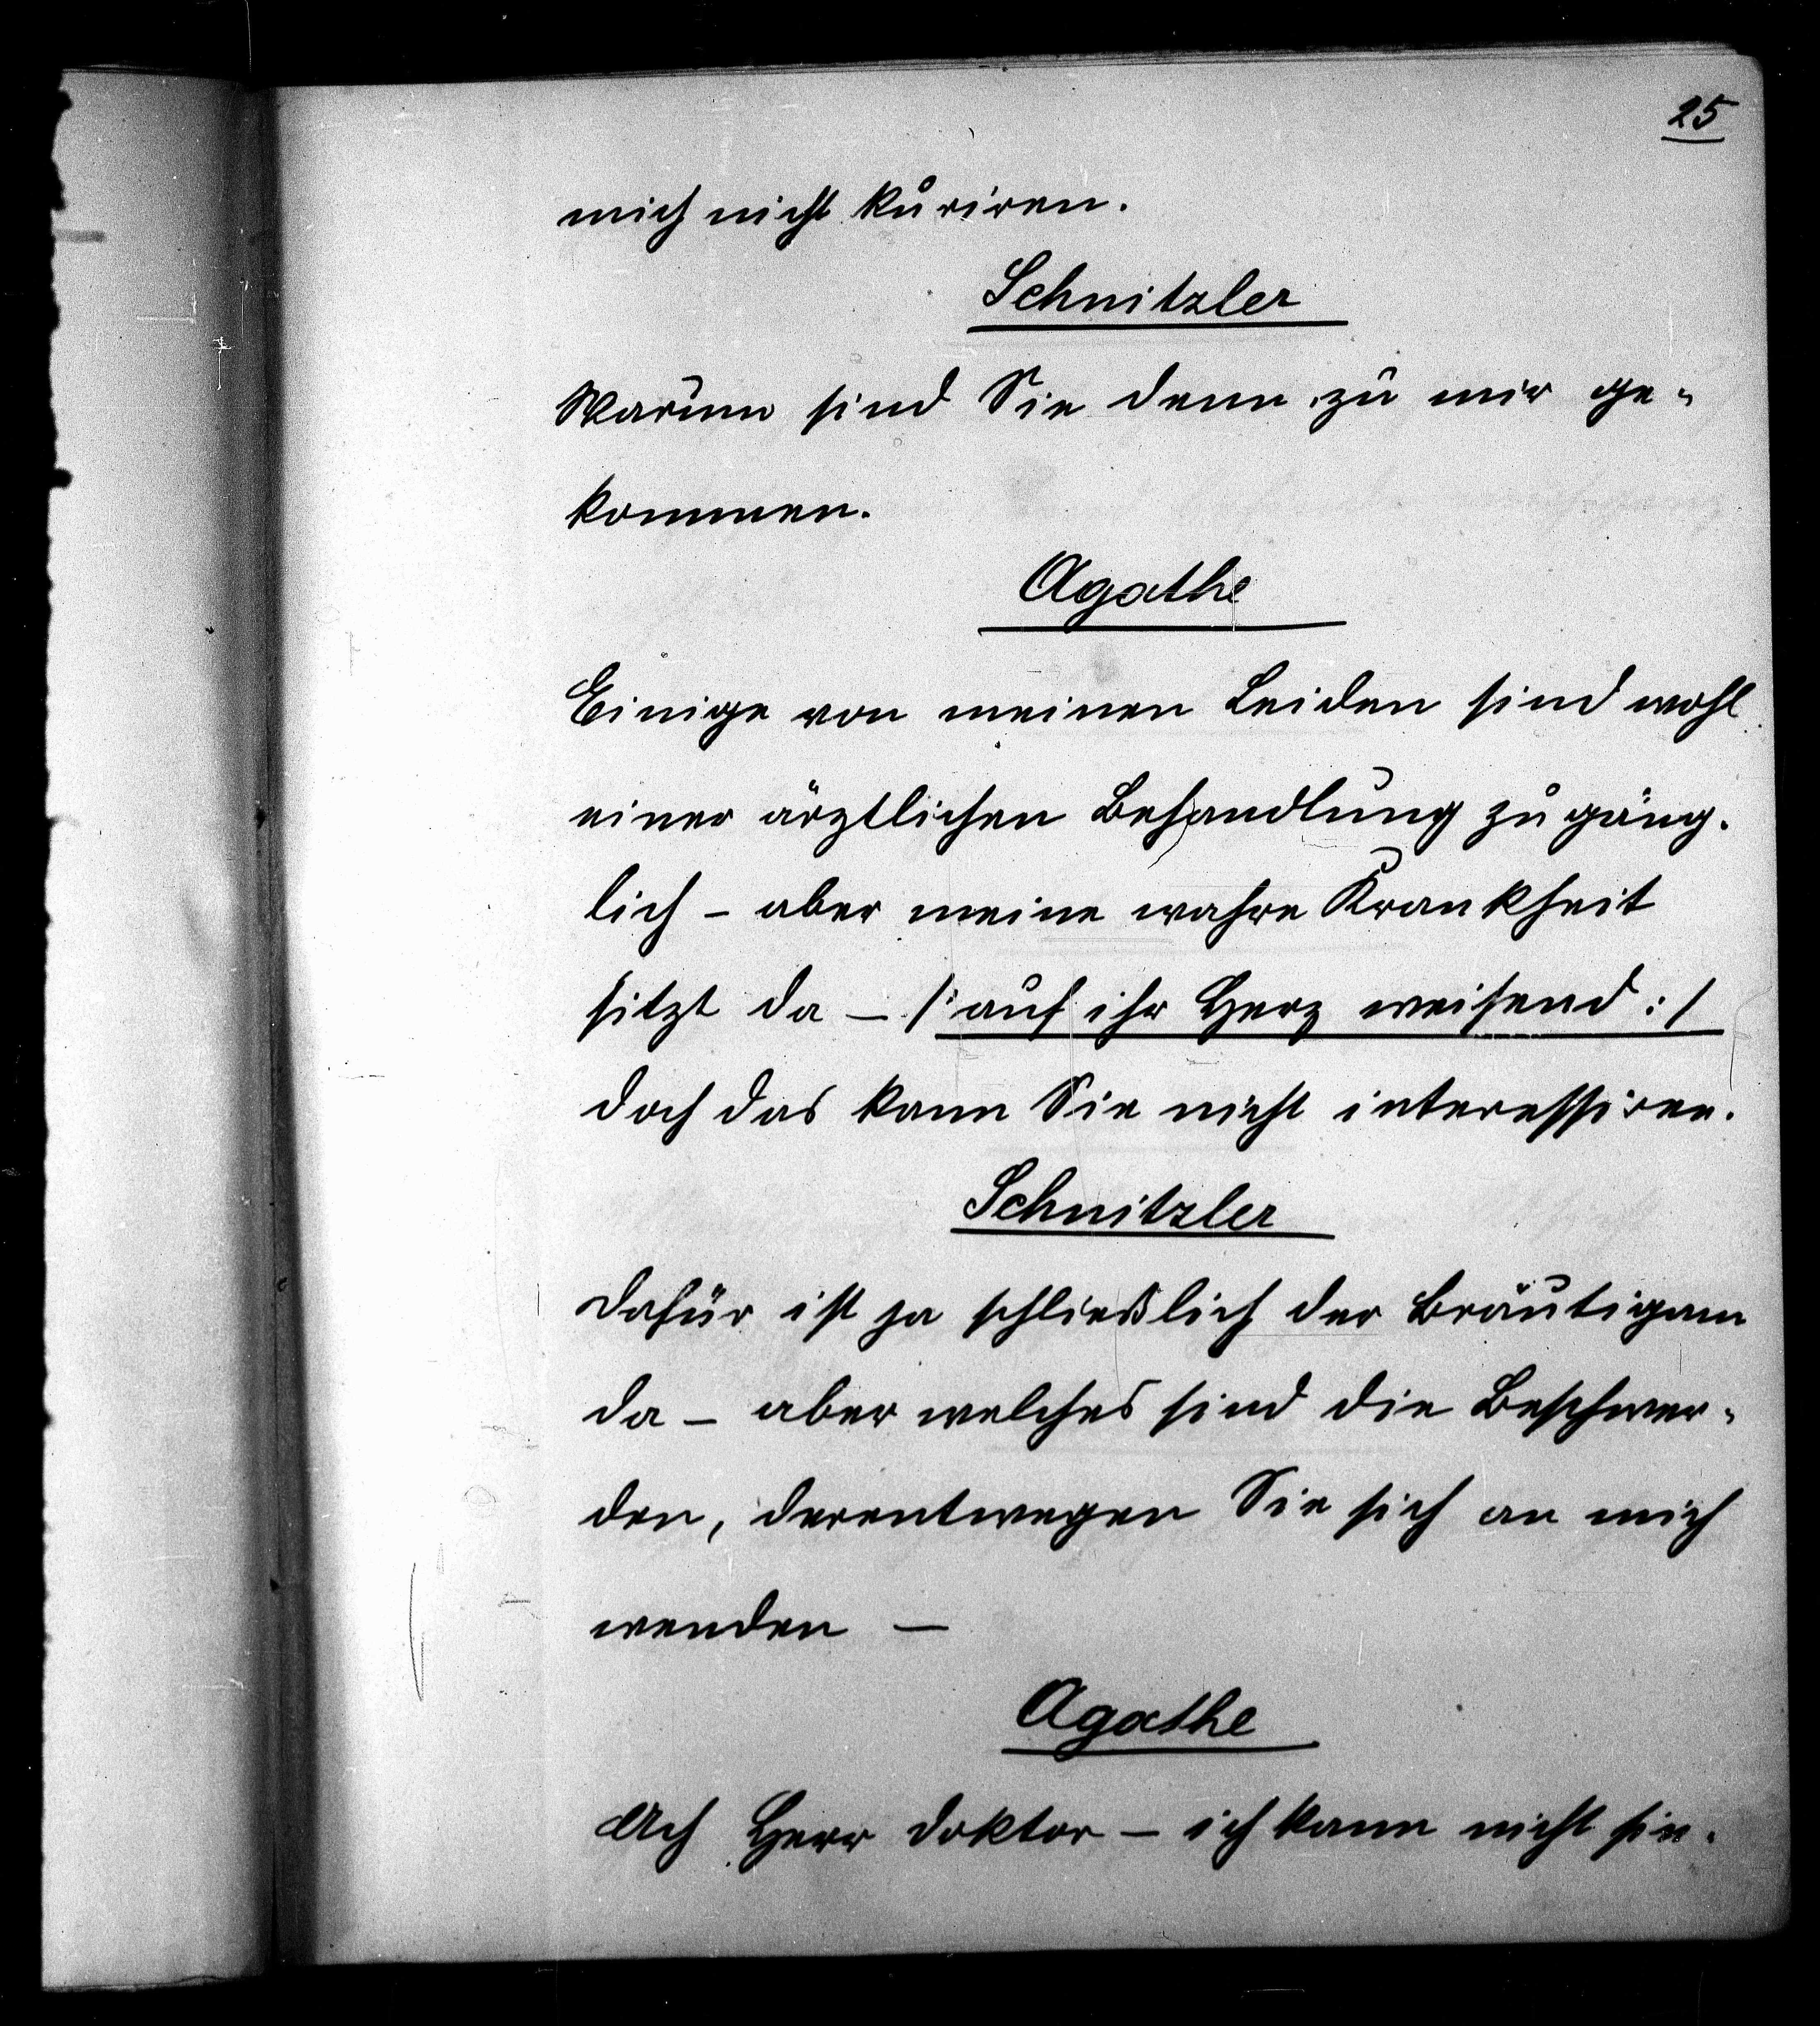 25
mich nicht kuriren.
Schnitzler
Warum sind Sie denn zu mir ge-
kommen.
Agathe
Einige von meinen Leiden sind wohl
einer ärztlichen Behandlung zugäng-
lich – aber meine wahre Krankheit
sitzt da – /: auf ihr Herz weisend :/
doch das kann Sie nicht interessiren.
Schnitzler
Dafür ist ja schließlich der Bräutigam
da – aber welches sind die Beschwer-
den, derentwegen Sie sich an mich
wenden –
Agathe
Ach Herr Doktor – ich kann nicht